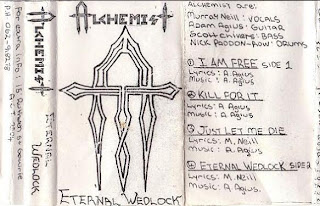 ALCHEMIST
ETERNAL
WEDLOCK
For extra info: 15
ACT
PH 062-
ALCHEMIST
ETERNAL WEDLOCK
Alchemist are:
Murray Neill: VOCALS
Adam Agius: GUITAR
Scott Chivers: BASS
NICK PADDON-Row: DRUMS
① I AM FREE SIDE 1
Lyrics: A Agius
Music: A. Agius
② KILL FOR IT.
Lyrics: A Agius
Music: A Agius
③ JUST LET ME DIE
Lyrics: M. Neill
Music: A. Agius
④ ETERNAL WEDLOCK SIDE 2
Lyrics: M. Neill
Music: A. Agius.